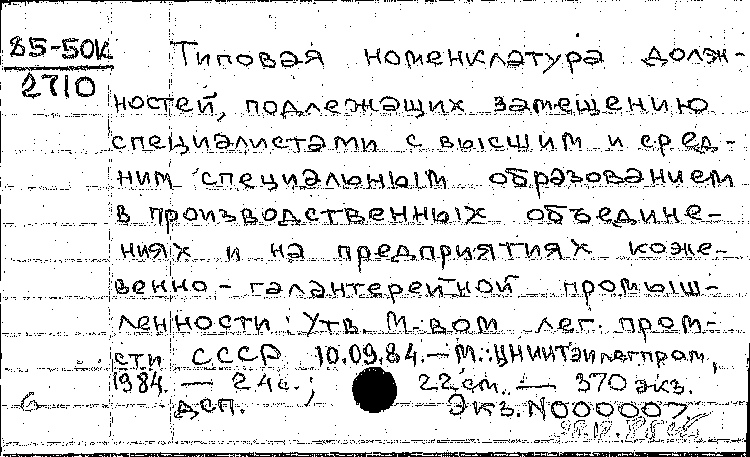 85-50К
2710
Типовая номенклатура долж-
ностей, подлежащих замещению
специалистами с высшим и сред-
ним специальным образованием
в производственных объедине-
ниях и на предприятиях коже-
венно-галантерейной промыш-
ленности: Утв. М-вом лег. пром-
сти СССР 10.09.84.—М.:ЦНИИТЭИлегпром,
1984. — 24с.; 22см. — 370 экз.
ДСП. Экз. N000007.